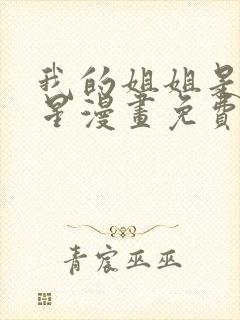 我的姐姐是
星漫畫免費
青宸巫巫